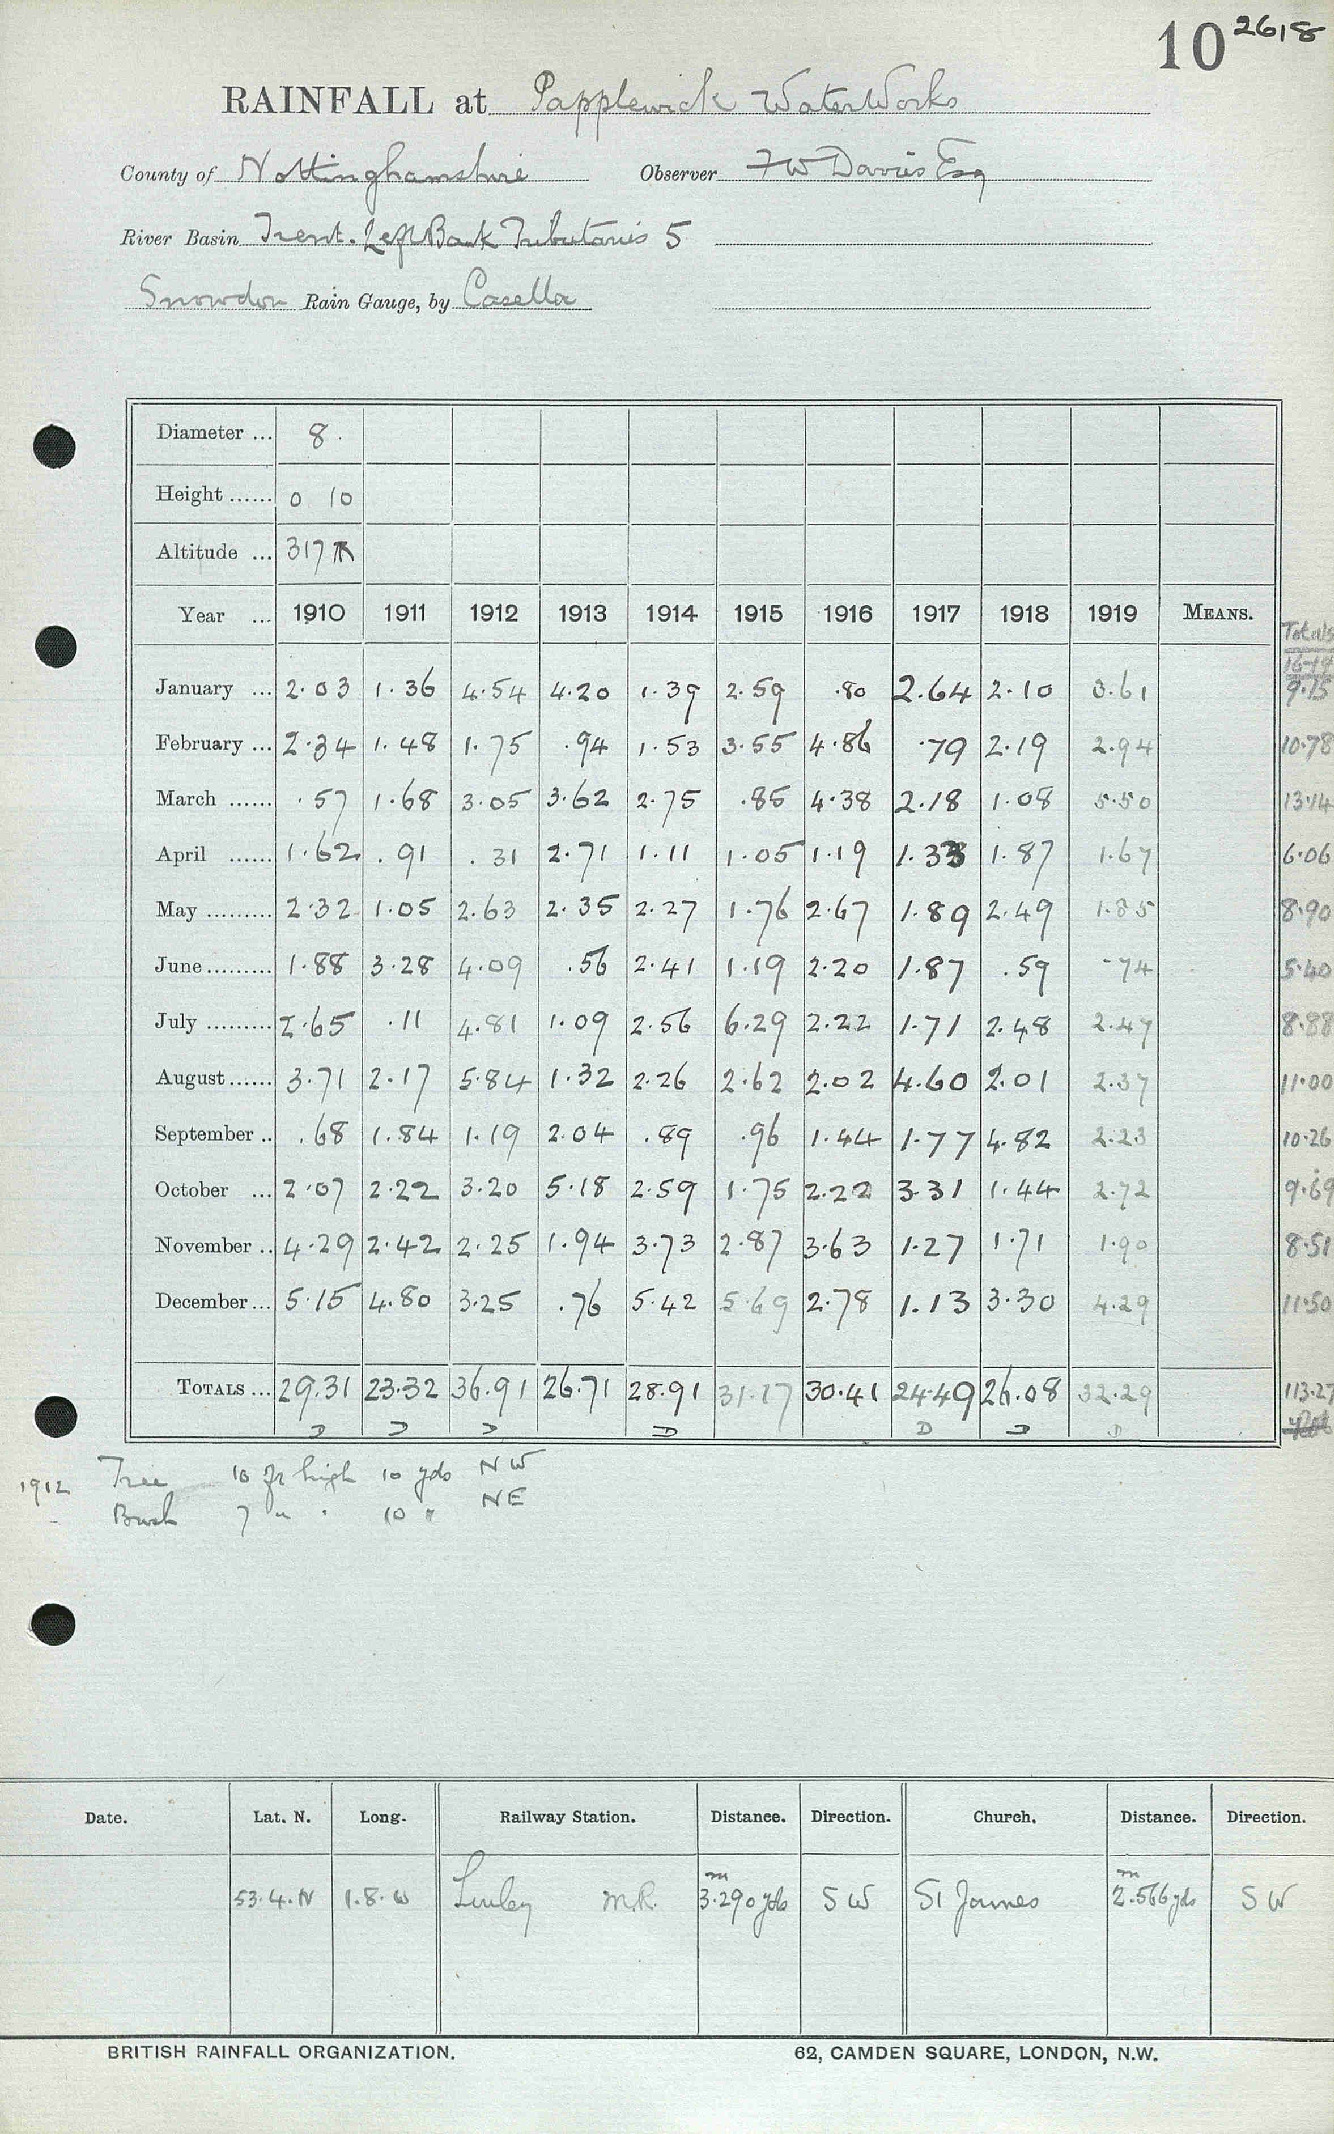 10 2618
RAINFALL at Papplewick WaterWorks
County of Nottinghamshire Observer FW Davies Esq
River Basin Trent. Left Bank Tributaries 5
Snowdon Rain Gauge, by Casella
Diameter ... 8.
Height ...... 0 10
Altitude ... 317
Year ... 1910 1911 1912 1913 1914 1915 1916 1917 1918 1919 MEANS. Totals
16-19
January ... 2.03 1.36 4.54 4.20 1.39 2.59 .80 2.64 2.10 3.61 9.15
February ... 2.34 1.48 1.75 .94 1.53 3.55 4.86 .79 2.19 2.94 10.78
March ...... .57 1.68 3.05 3.62 2.75 .85 4.38 2.18 1.08 5.50 13.14
April ...... 1.62 .91 .31 2.71 1.11 1.05 1.19 1.33 1.87 1.67 6.06
May ......... 2.32 1.05 2.63 2.35 2.27 1.76 2.67 1.89 2.49 1.85 8.90
June ......... 1.88 3.28 4.09 .56 2.41 1.19 2.20 1.87 .59 .74 5.40
July ......... 2.65 .11 4.81 1.09 2.56 6.29 2.22 1.71 2.48 2.47 8.88
August ...... 3.71 2.17 5.84 1.32 2.26 2.62 2.02 4.60 2.01 2.37 11.00
September .. .68 1.84 1.19 2.04 .89 .96 1.44 1.77 4.82 2.23 10.26
October ... 2.07 2.22 3.20 5.18 2.59 1.75 2.22 3.31 1.44 2.72 9.69
November .. 4.29 2.42 2.25 1.94 3.73 2.87 3.63 1.27 1.71 1.90 8.51
December ... 5.15 4.80 3.25 .76 5.42 5.69 2.78 1.13 3.30 4.29 11.50
TOTALS ... 29.31 23.32 36.91 26.71 28.91 31.17 30.41 24.49 26.08 32.29 113.27
D D D D D D D
1912 Tree 10 ft high 10 yds NW
Bush 7 " " 10 " NE
Date. Lat. N. Long. Railway Station. Distance. Direction. Church. Distance. Direction.
53.4.N 1.8.W Linley M.R. 3.290 yds SW St James 2.566 yds SW
BRITISH RAINFALL ORGANIZATION. 62, CAMDEN SQUARE, LONDON, N.W.